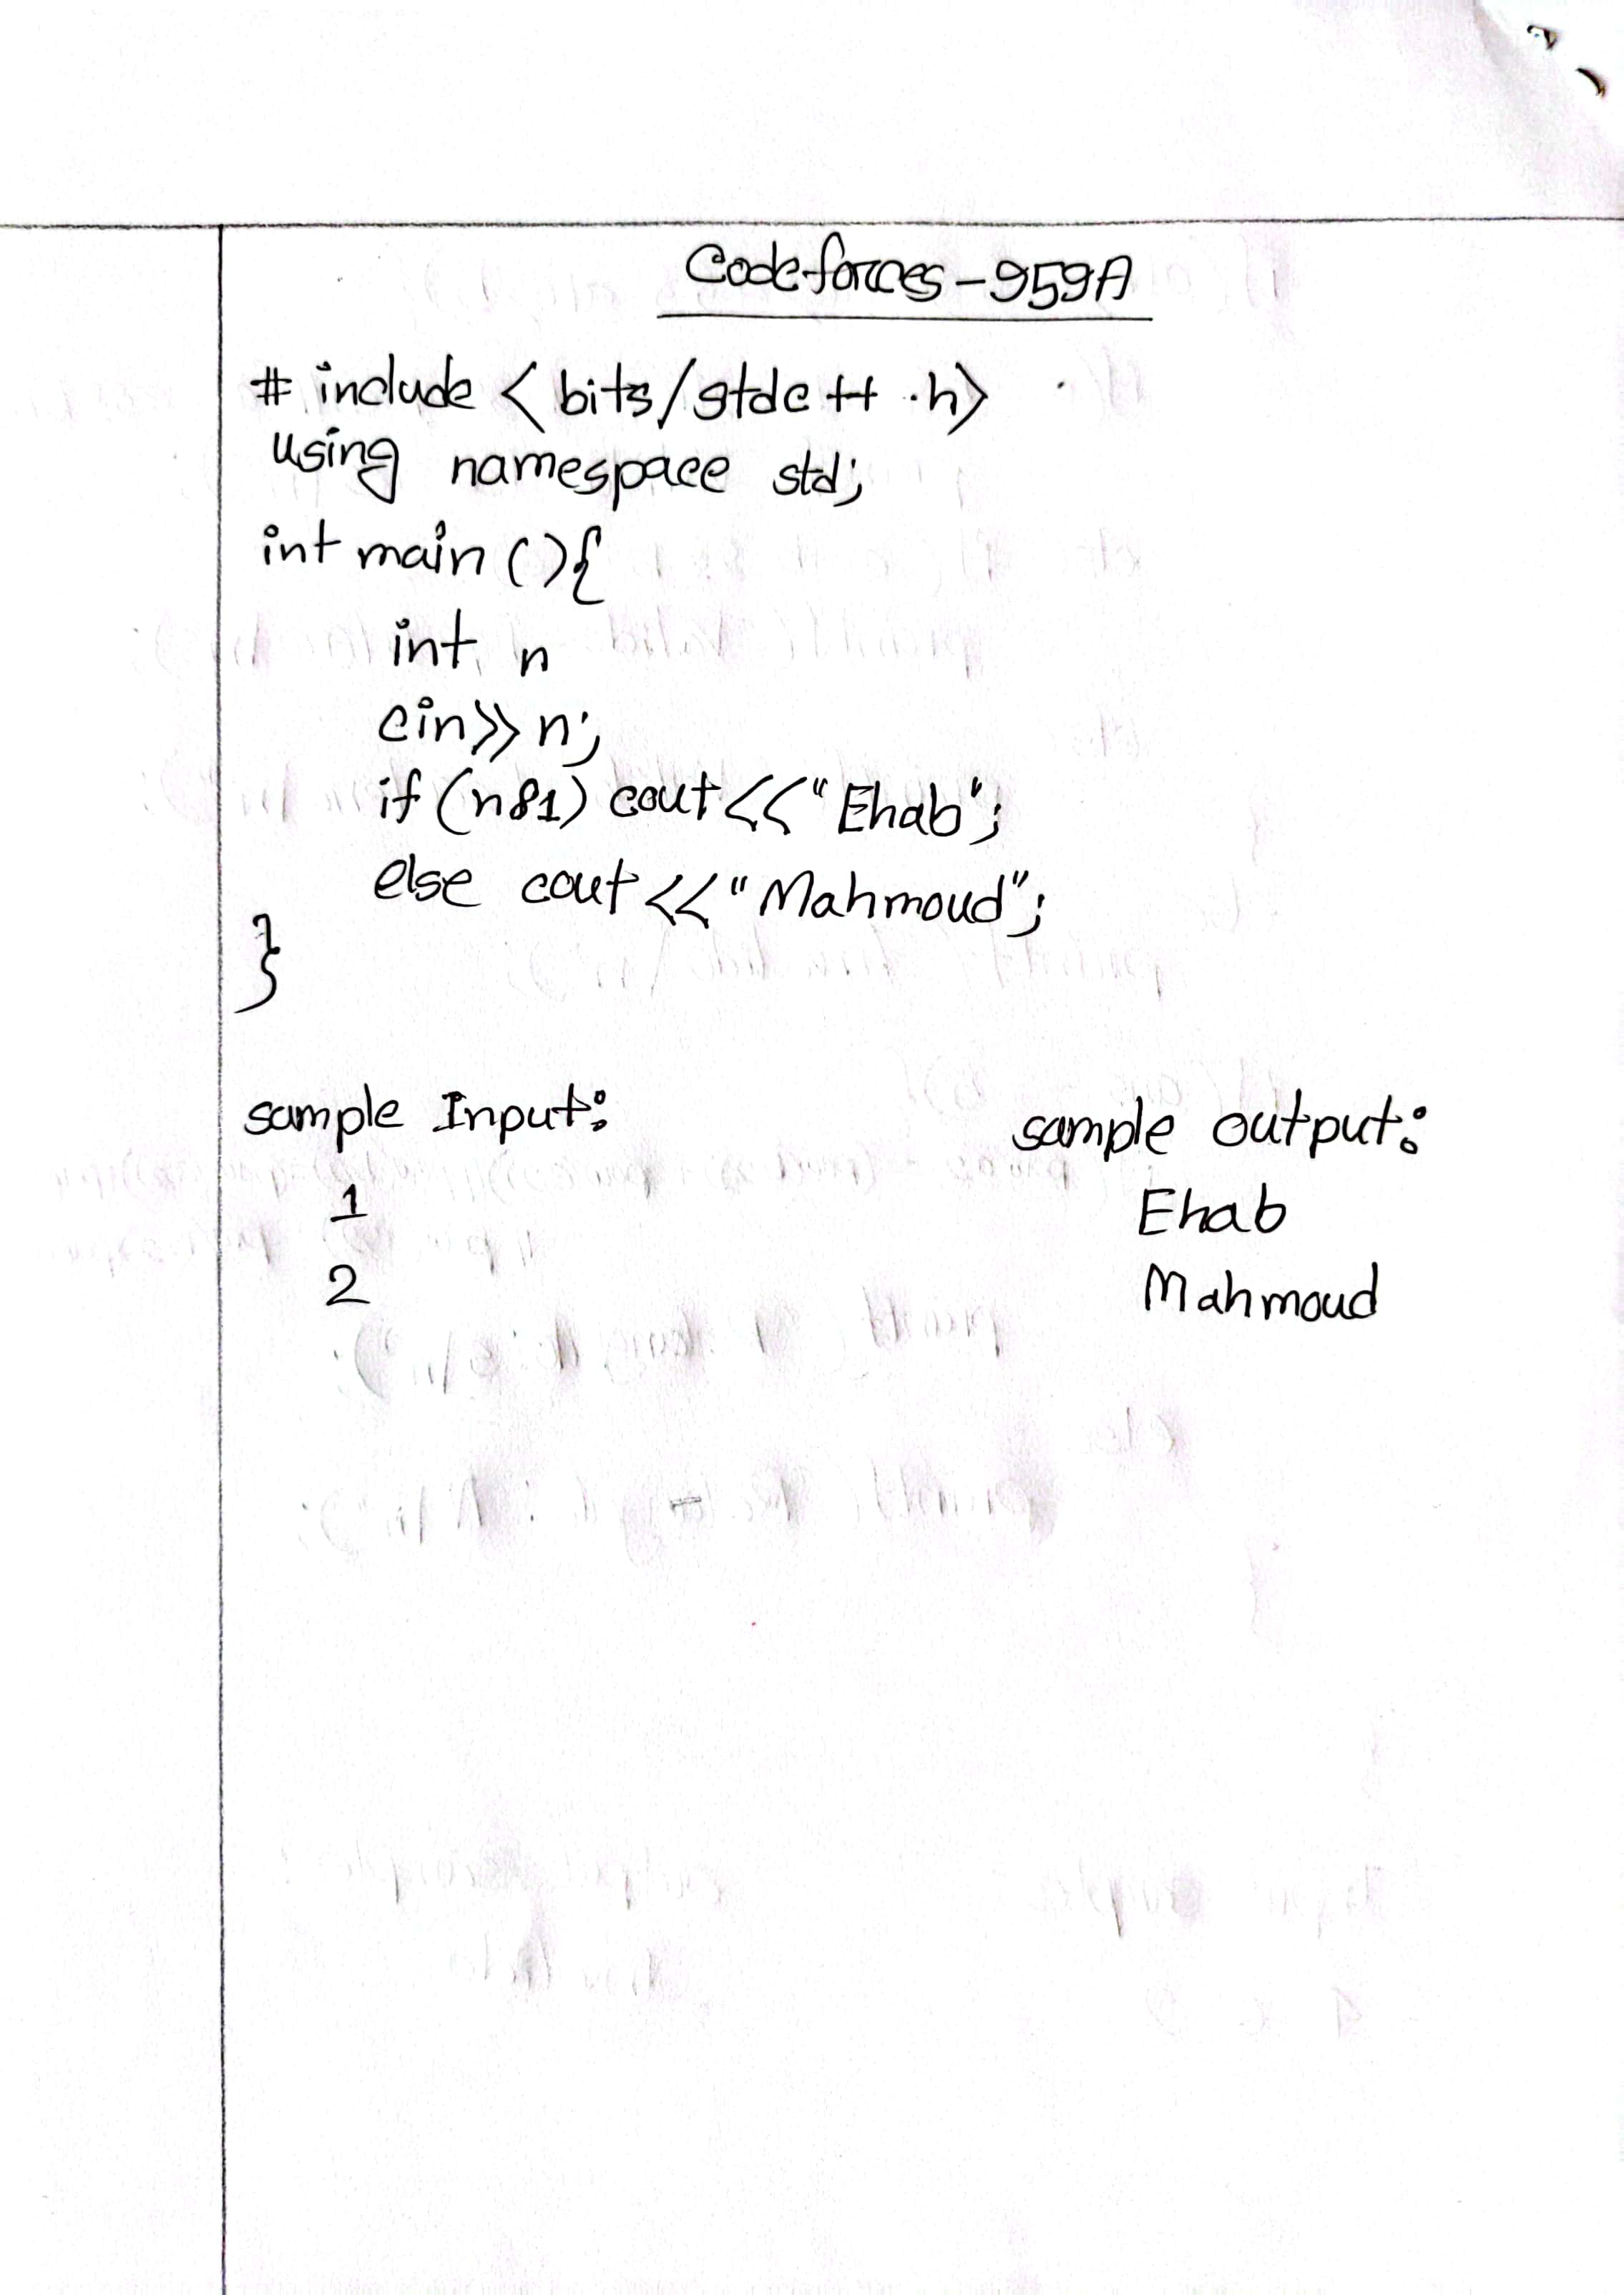 Codeforces-959A
# include < bits/stdc++.h>
using namespace std;
int main (){
int n
cin>>n;
if (n&1) cout<<"Ehab";
else cout<<"Mahmoud";
}
sample Input: sample output:
1 Ehab
2 Mahmoud